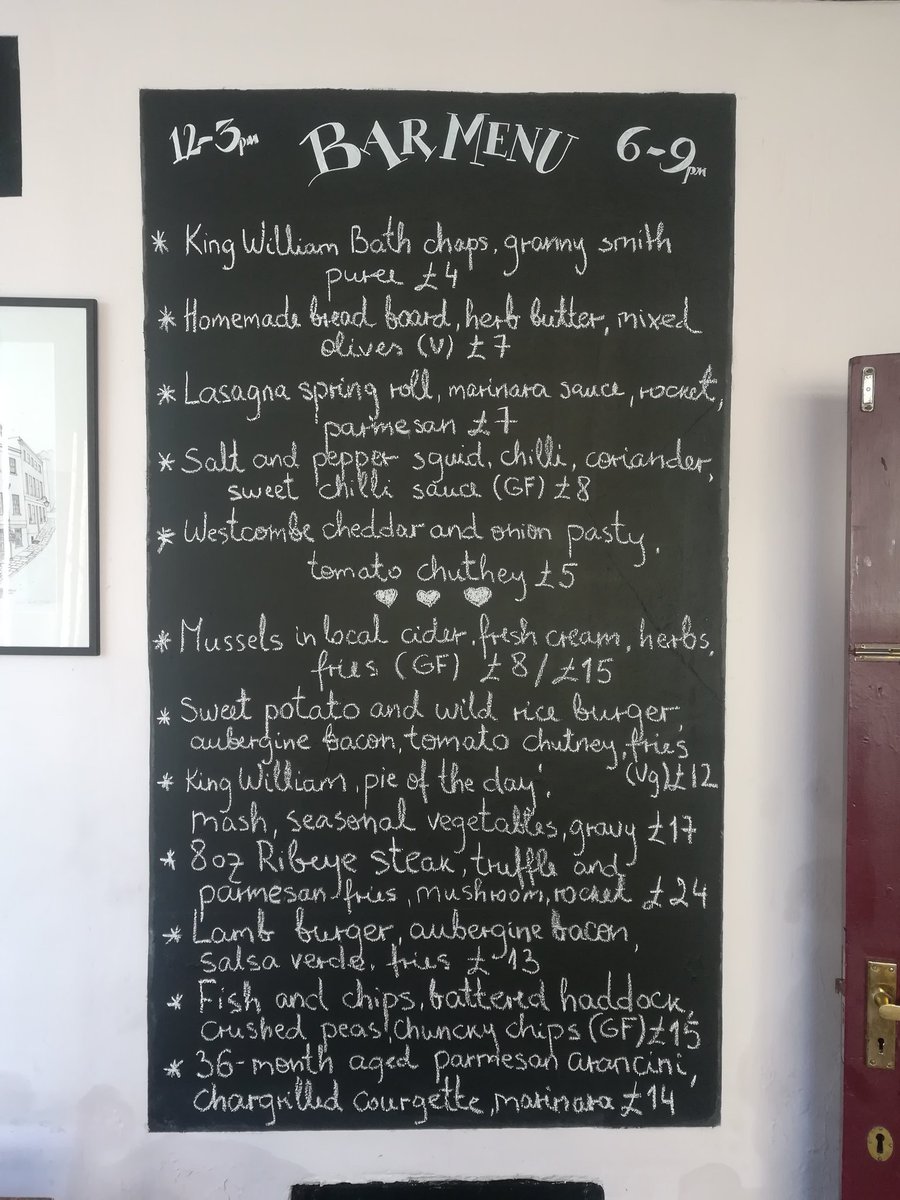 12-3pm BAR MENU 6-9pm
* King William Bath chaps, granny smith
puree £4
* Homemade bread board, herb butter, mixed
olives (V) £7
* Lasagna spring roll, marinara sauce, rocket,
parmesan £7
* Salt and pepper squid, chilli, coriander,
sweet chilli sauce (GF) £8
* Westcombe cheddar and onion pasty,
tomato chuthey £5
* Mussels in local cider, fresh cream, herbs,
fries (GF) £8/£15
* Sweet potato and wild rice burger,
aubergine bacon, tomato chutney, fries
(Vg) £12
* King William, pie of the day,
mash, seasonal vegetables, gravy £17
* 8oz Ribeye steak, truffle and
parmesan fries, mushroom, rocket £24
* Lamb burger, aubergine bacon,
salsa verde, fries £13
* Fish and chips, battered haddock,
crushed peas, chuncky chips (GF) £15
* 36-month aged parmesan arancini,
chargrilled courgette, marinara £14